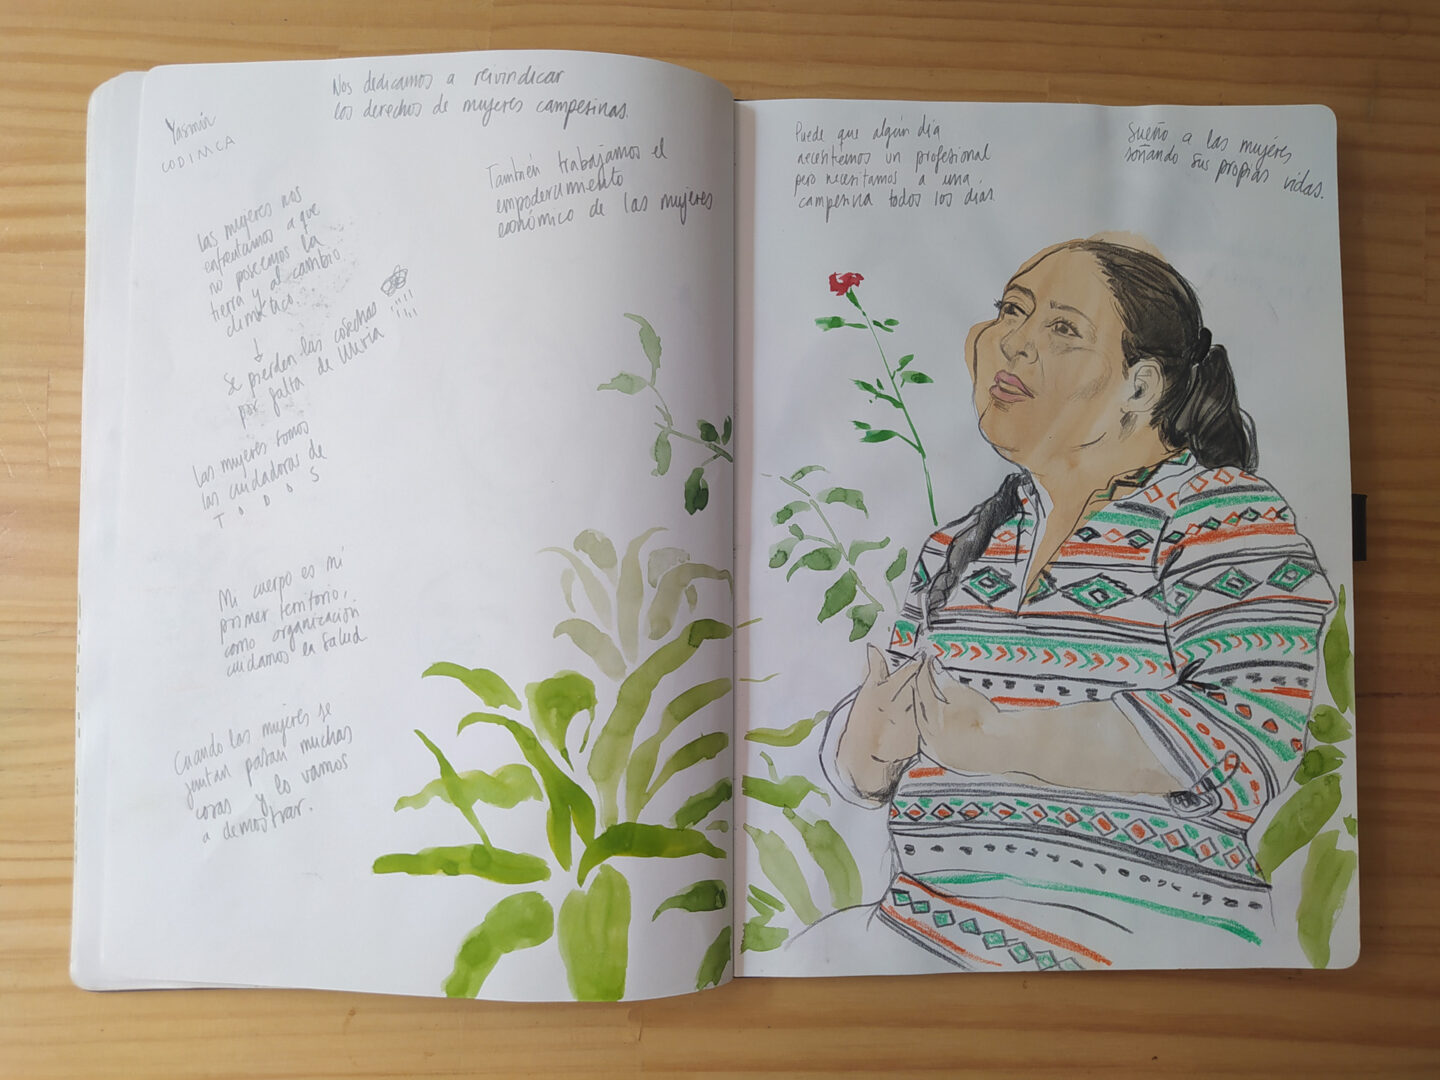 Yasmín
CODIMCA
Nos dedicamos a reivindicar
los derechos de mujeres campesinas.
También trabajamos el
empoderamiento
económico de las mujeres
las mujeres nos
enfrentamos a que
no poseemos la
tierra y al cambio
climático
↓
Se pierden las cosechas
por falta de lluvia
las mujeres somos
las cuidadoras de
T O D O S
Mi cuerpo es mi
primer territorio,
como organización
cuidamos la salud
Cuando las mujeres se
juntan pasan muchas
cosas y lo vamos
a demostrar.
Puede que algún día
necesitemos un profesional
pero necesitamos a una
campesina todos los días.
Sueño a las mujeres
soñando sus propias vidas.